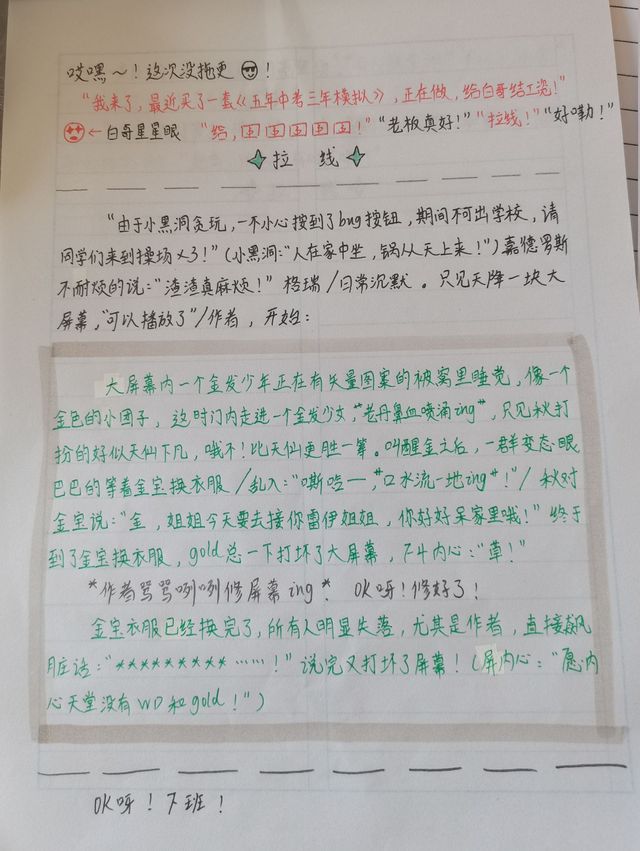 哎嘿～！这次没拖更😎！
“我来了，最近买了一套《五年中考三年模拟》，正在做，给白哥结工资！”
😍←白哥星星眼 “给，💵💵💵💵💵！”“老板真好！”“拉线！”“好嘞！”
✦拉 线✦
“由于小黑洞贪玩，一不小心按到了bug按钮，期间不可出学校，请
同学们来到操场×3！”（小黑洞：“人在家中坐，锅从天上来！”）嘉德罗斯
不耐烦的说：“渣渣真麻烦！”格瑞/日常沉默。只见天降一块大
屏幕，“可以播放了”/作者，开始：
大屏幕内一个金发少年正在有矢量图案的被窝里睡觉，像一个
金色的小团子，这时门内走进一个金发少女，“老丹鼻血喷涌ing”，只见秋打
扮的好似天仙下凡，哦不！比天仙更胜一筹。叫醒金之后，一群变态眼
巴巴的等着金宝换衣服/乱入：“嘶哈一，*口水流一地ing*！”/秋对
金宝说：“金，姐姐今天要去接你雷伊姐姐，你好好呆家里哦！”终于
到了金宝换衣服，gold总一下打坏了大屏幕，
内心：“草！”
*作者骂骂咧咧修屏幕ing* OK呀！修好了！
金宝衣服已经换完了，所有人明显失落，尤其是作者，直接飙
脏话：“*********……！”说完又打坏了屏幕！（屏内心：“愿
心天堂没有WD和gold！”）
OK呀！下班！